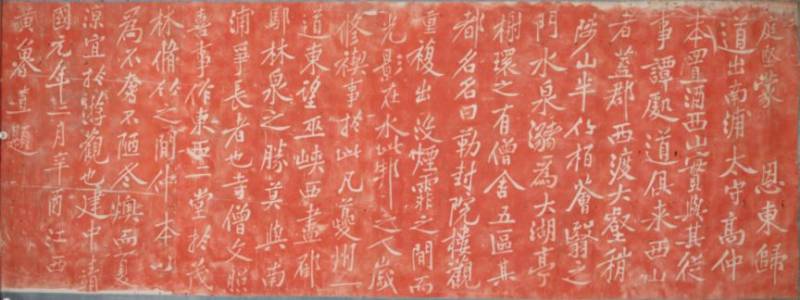 庭堅蒙　恩東歸
道出南浦太守高仲
本置酒西山實與其從
事譚處道俱來西山
者蓋郡西渡大壑稍
陟山半竹柏薈翳之
門水泉瀦為大湖亭
榭環之有僧舍五區其
都名名曰勒封院樓觀
重複出沒煙霏之間而
光影在水此邦之人歲
修禊事於此凡夔州一
道東望巫峽西盡郁
鄢林泉之勝莫與南
浦爭長者也寺僧文照
喜事作東西二堂於茂
林脩竹之間仲本以
為不奢不陋冬燠而夏
涼宜於遊觀也建中靖
國元年二月辛酉江西
黃魯直題